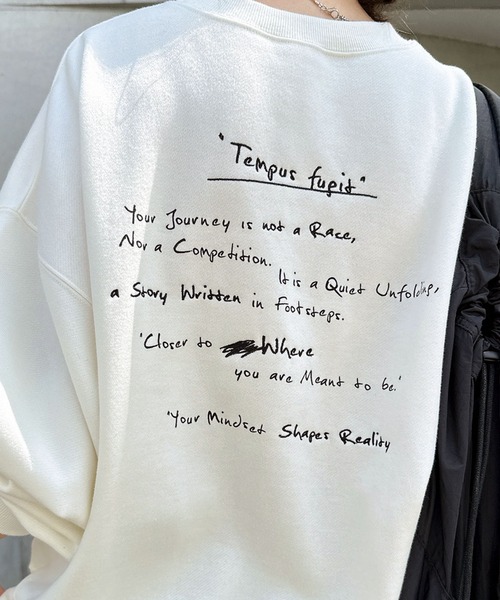 "Tempus fugit"
Your Journey is not a Race,
Nor a Competition.
It is a Quiet Unfolding,
a Story Written in footsteps.
'Closer to Where
you are Meant to be.'
"Your Mindset Shapes Reality